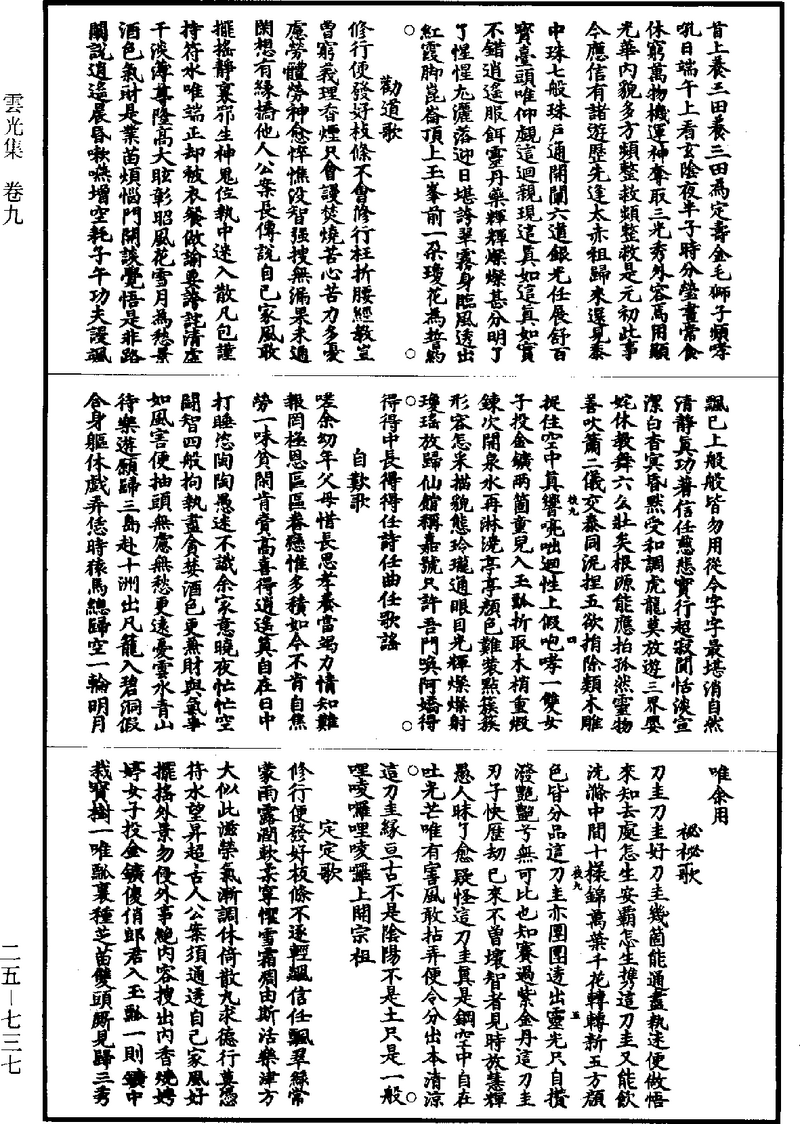 首上養三田養三田為定壽金毛獅子頻哮
吼日端午上看玄陰夜半子時分瑩晝常食
休窮萬物機運神奪取三光秀外容焉用顯
光華內貌多方頻整救頻整救是元初此事
今應信有諸遊歷先逢太赤祖歸來還見泰
中珠七般珠戶通開闡六道銀光任展舒百
寶臺頭唯仰覷這迴親現這真如這真如實
不錯逍遙服餌靈丹藥輝輝燦燦甚分明了
了惺惺尢灑落迎日堪誇翠霧身臨風透出
紅霞腳崑崙頂上玉峯前一朵瓊花為
勸道歌
修行便發好枝條不會修行枉折腰經教豈
曾窮義理香煙只會謾焚燒苦心苦力多憂
慮勞體勞神愈悴憔沒智強搜無漏果未通
閑想有緣橋他人公案長傳說自己家風敢
擺搖靜裏邪生神鬼位執中迷入散凡包謹
持符水唯端正却被衣餐做諭要落詫清虛
干淡薄尊隆高大眩彰昭風花雪月為愁景
酒色氣財是業苗煩惱門開談覺悟是非路
闡說逍遙晨昏啾嚥增空耗子午功夫謾諷
飄已上般般皆勿用從今字字最堪消自然
清靜真功著信任慈悲實行超寂間恬淡宣
潔白杳冥昏黙受和調虎龍莫放遊三界嬰
姹休教舞六么壯矣根源能應拍孤然靈物
善吹簫二儀交泰同洗捏五欲捎除類木雕
捉住空中真響亮咄迴性上假咆哮一雙女
子投金鑛兩箇童兒入玉瓢折取木梢重煅
鍊次開泉水再淋洗亭亭顏色難裝點簇簇
形容怎采描貌態玲瓏通眼目光輝燦燦射
瓊瑤放歸仙舘稱嘉號只許吾門喚阿嬌得
得得中長得得任詩任曲任歌謠
自歎歌
嗟余幼年父母惜長思孝養當竭力情知難
報罔極恩區區眷戀惟多積如今不肯自焦
勞一味貧閑肯賣高喜得逍遙真自在日中
打睡恣陶陶愚迷不識余家意曉夜忙忙空
鬬智四般拘執盡貪婪酒色更兼財與氣事
如風害便抽頭無慮無愁更遠憂雲水青山
待樂遊願歸三島赴十洲出凡籠入碧洞假
合身軀休戲弄恁時猿馬總歸空一輪明月
唯余用
祕祕歌
刀圭刀圭好刀圭幾箇能通盡執迷便做悟
來知去處怎生安霸怎生携這刀圭又能飲
洗滌中間十樣錦萬葉千花轉轉新五方顏
色皆分品這刀圭亦團團透出靈光只自攅
潑艷艷兮無可比也知賽過紫金丹這刀圭
刃子快歷劫已來不曾壞智者見時放慧輝
愚人昧了愈疑怪這刀圭真是鋼空中自在
吐光芒唯有害風敢拈弄便令分出本清凉
這刀圭緣亘古不是陰陽不是土只是一般
哩唛囉哩唛囉上開宗祖
定定歌
修行便發好枝條不逐輕飄信任飄翠絲常
蒙雨露潤軟柔寧懼雪霜凋由斯活樂津方
大似此滋榮氣漸調休倚散九求德行莫憑
符水望昇超古人公案須通透自己家風好
擺搖外景勿侵外事絕內容搜出內香燒娉
婷女子投金鑛傻俏郎君入玉瓢一則鑛中
栽寶樹一唯瓢裏種芝苗雙頭厮見歸三秀
雲光集 卷九
二五—七三七